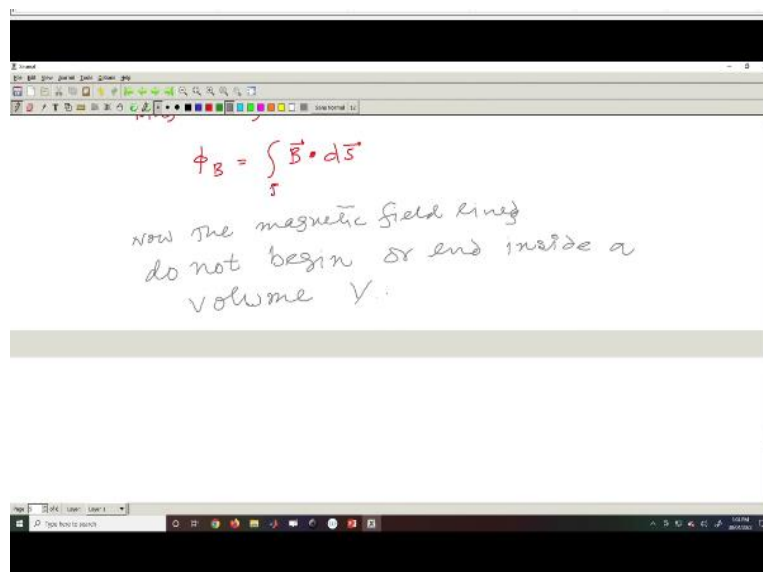 Xournal
File Edit View Journal Tools Options Help
Sans Normal 12
ϕ_B = ∫_S B⃗ • dS⃗
Now the magnetic field lines
do not begin or end inside a
volume V.
Page 5 of 6 Layer: Layer 1
Type here to search